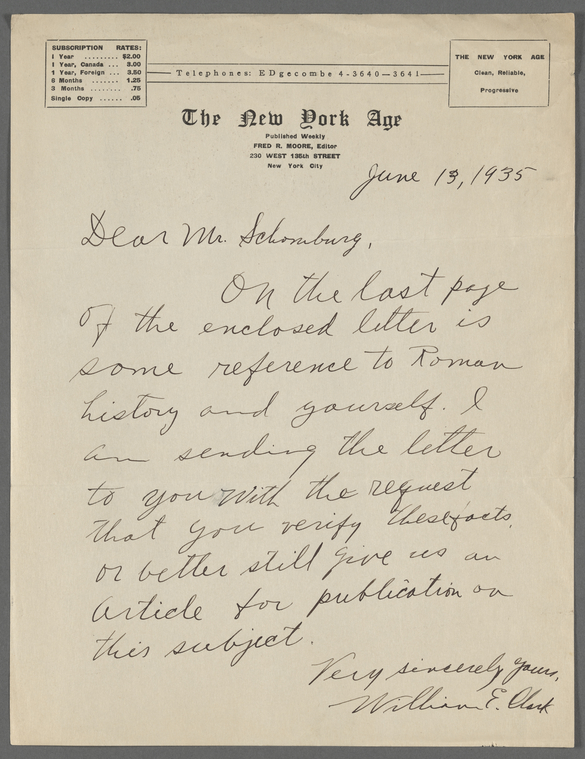 SUBSCRIPTION RATES:
1 Year ......... $2.00
1 Year, Canada ... 3.00
1 Year, Foreign ... 3.50
6 Months ....... 1.25
3 Months ....... .75
Single Copy ...... .05
Telephones: EDgecombe 4-3640—3641
THE NEW YORK AGE
Clean, Reliable,
Progressive
The New York Age
Published Weekly
FRED R. MOORE, Editor
230 WEST 135th STREET
New York City
June 13, 1935
Dear Mr. Schomburg,
On the last page
of the enclosed letter is
some reference to Roman
history and yourself. I
am sending the letter
to you with the request
that you verify these facts,
or better still give us an
article for publication on
this subject.
Very sincerely yours,
William E. Clark